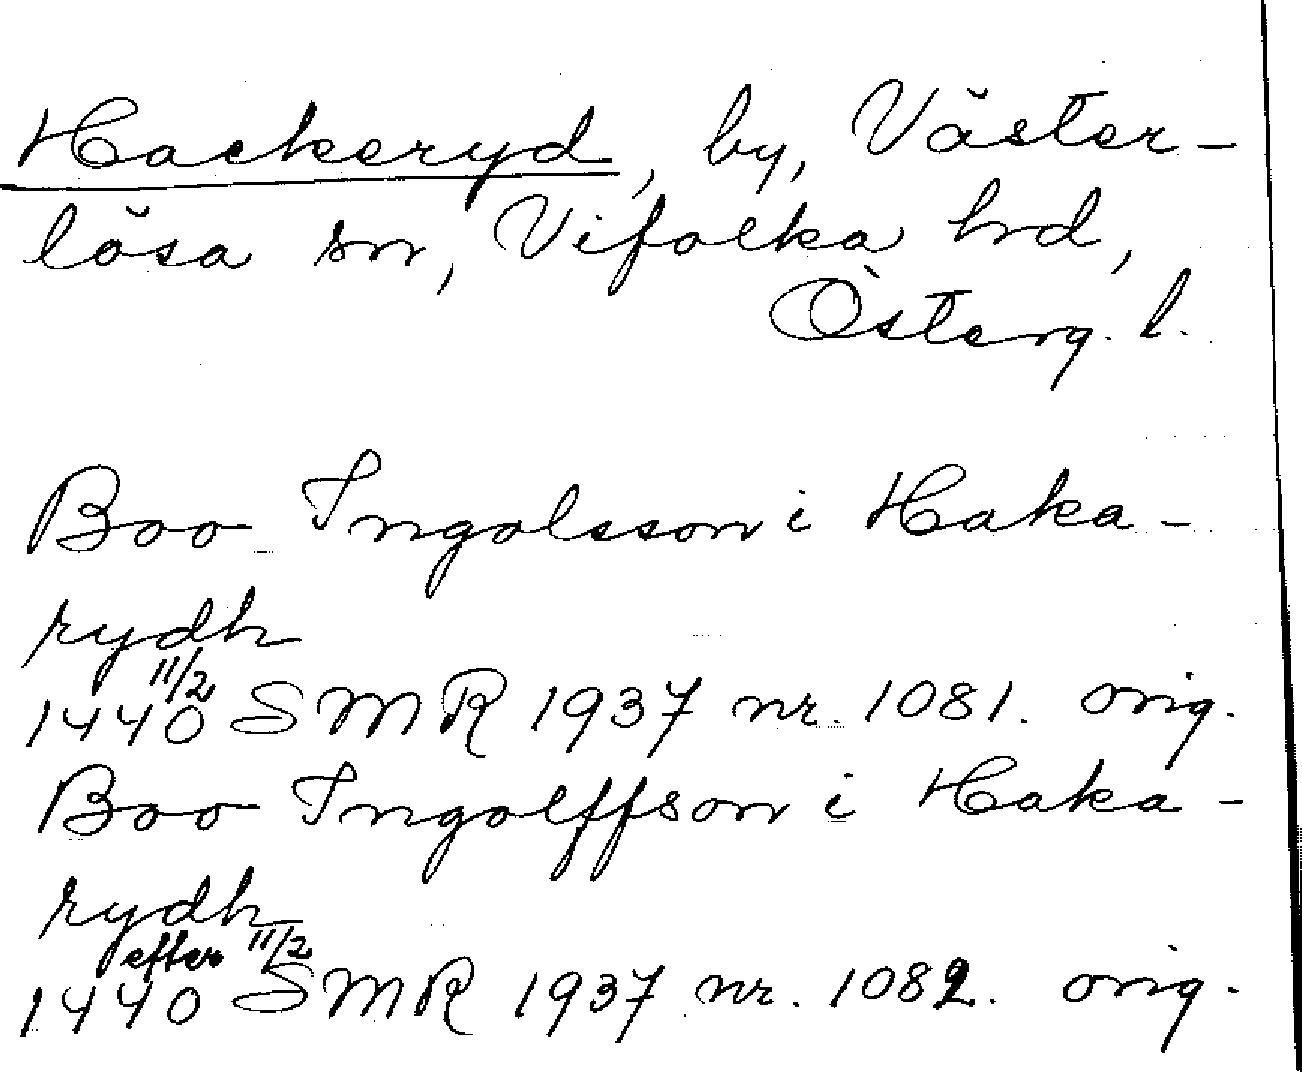 Hackeryd, by, Väster-
lösa sn, Vifolka hrd,
Österg. l.
Boo Ingolsson i Haka-
rydh
11/2
1440 SMR 1937 nr. 1081. orig.
Boo Ingolffson i Haka-
rydh
efter 11/2
1440 SMR 1937 nr. 1082. orig.